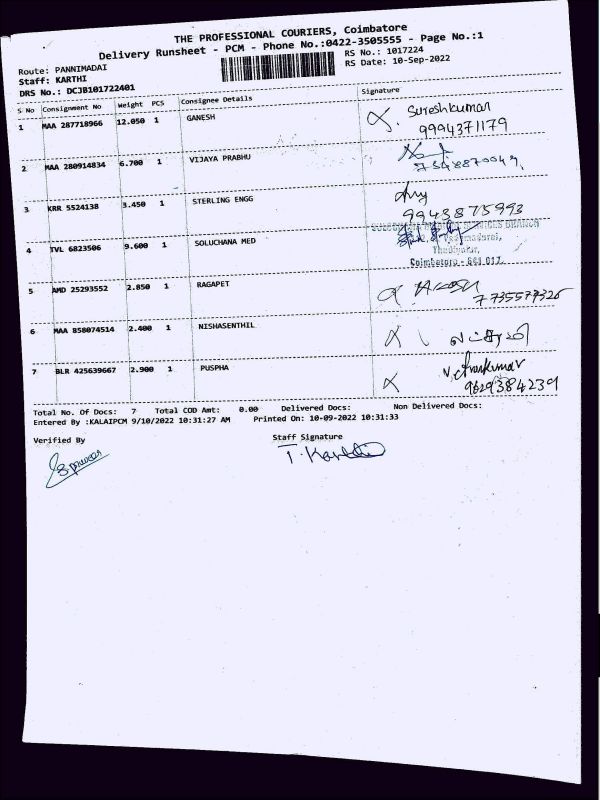 THE PROFESSIONAL COURIERS, Coimbatore
Delivery Runsheet - PCM - Phone No.:0422-3505555 - Page No.:1
Route: PANNIMADAI
RS No.: 1017224
Staff: KARTHI
RS Date: 10-Sep-2022
DRS No.: DCJB101722401
S No Consignment No Weight PCS Consignee Details Signature
1 MAA 287718966 12.050 1 GANESH Sureshkumar
9994371179
2 MAA 280914834 6.700 1 VIJAYA PRABHU
3 KRR 5524138 3.450 1 STERLING ENGG
9943875993
4 TVL 6823506 9.600 1 SOLUCHANA MED
Coimbatore - 641 017.
5 AMD 25293552 2.850 1 RAGAPET
7735577326
6 MAA 858074514 2.400 1 NISHASENTHIL
7 BLR 425639667 2.900 1 PUSPHA
9629384239
Total No. Of Docs: 7 Total COD Amt: 0.00 Delivered Docs: Non Delivered Docs:
Entered By :KALAIPCM 9/10/2022 10:31:27 AM Printed On: 10-09-2022 10:31:33
Verified By Staff Signature
T. Karthi